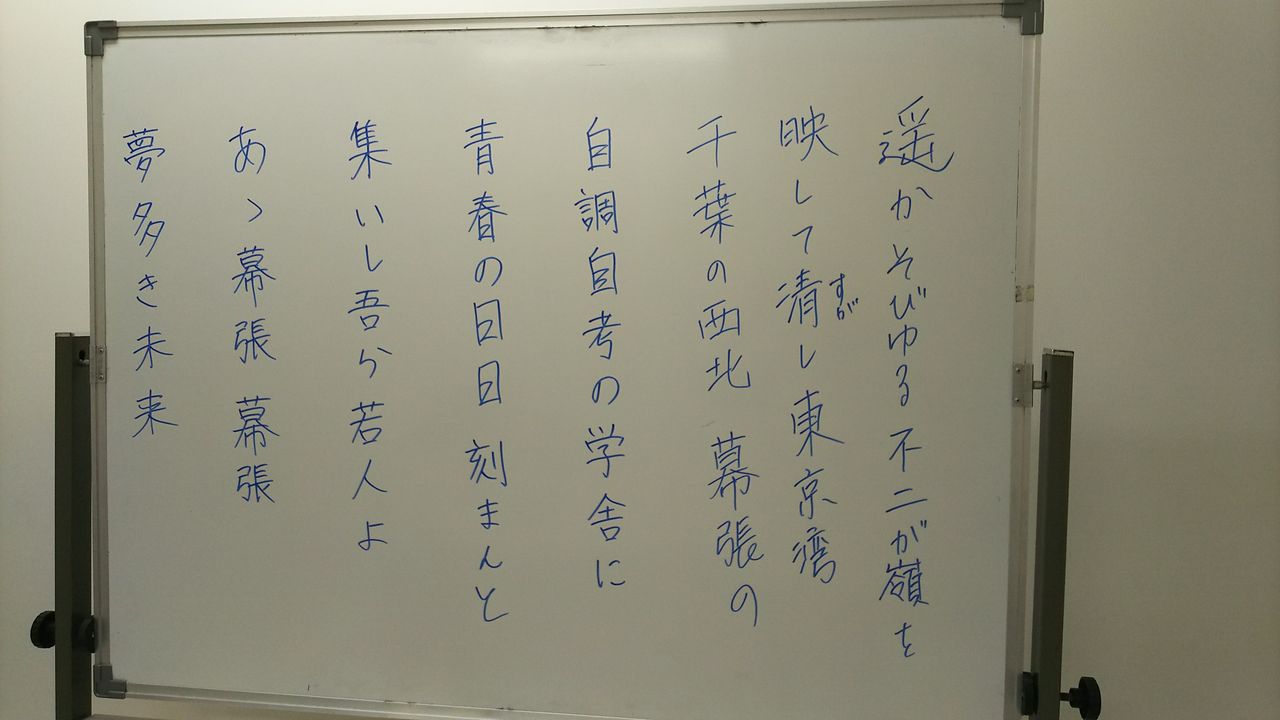 遥かそびゆる不二が嶺を
映して清し東京湾
すが
千葉の西北 幕張の
自調自考の学舎に
青春の日日 刻まんと
集いし吾ら若人よ
あゝ幕張 幕張
夢多き未来